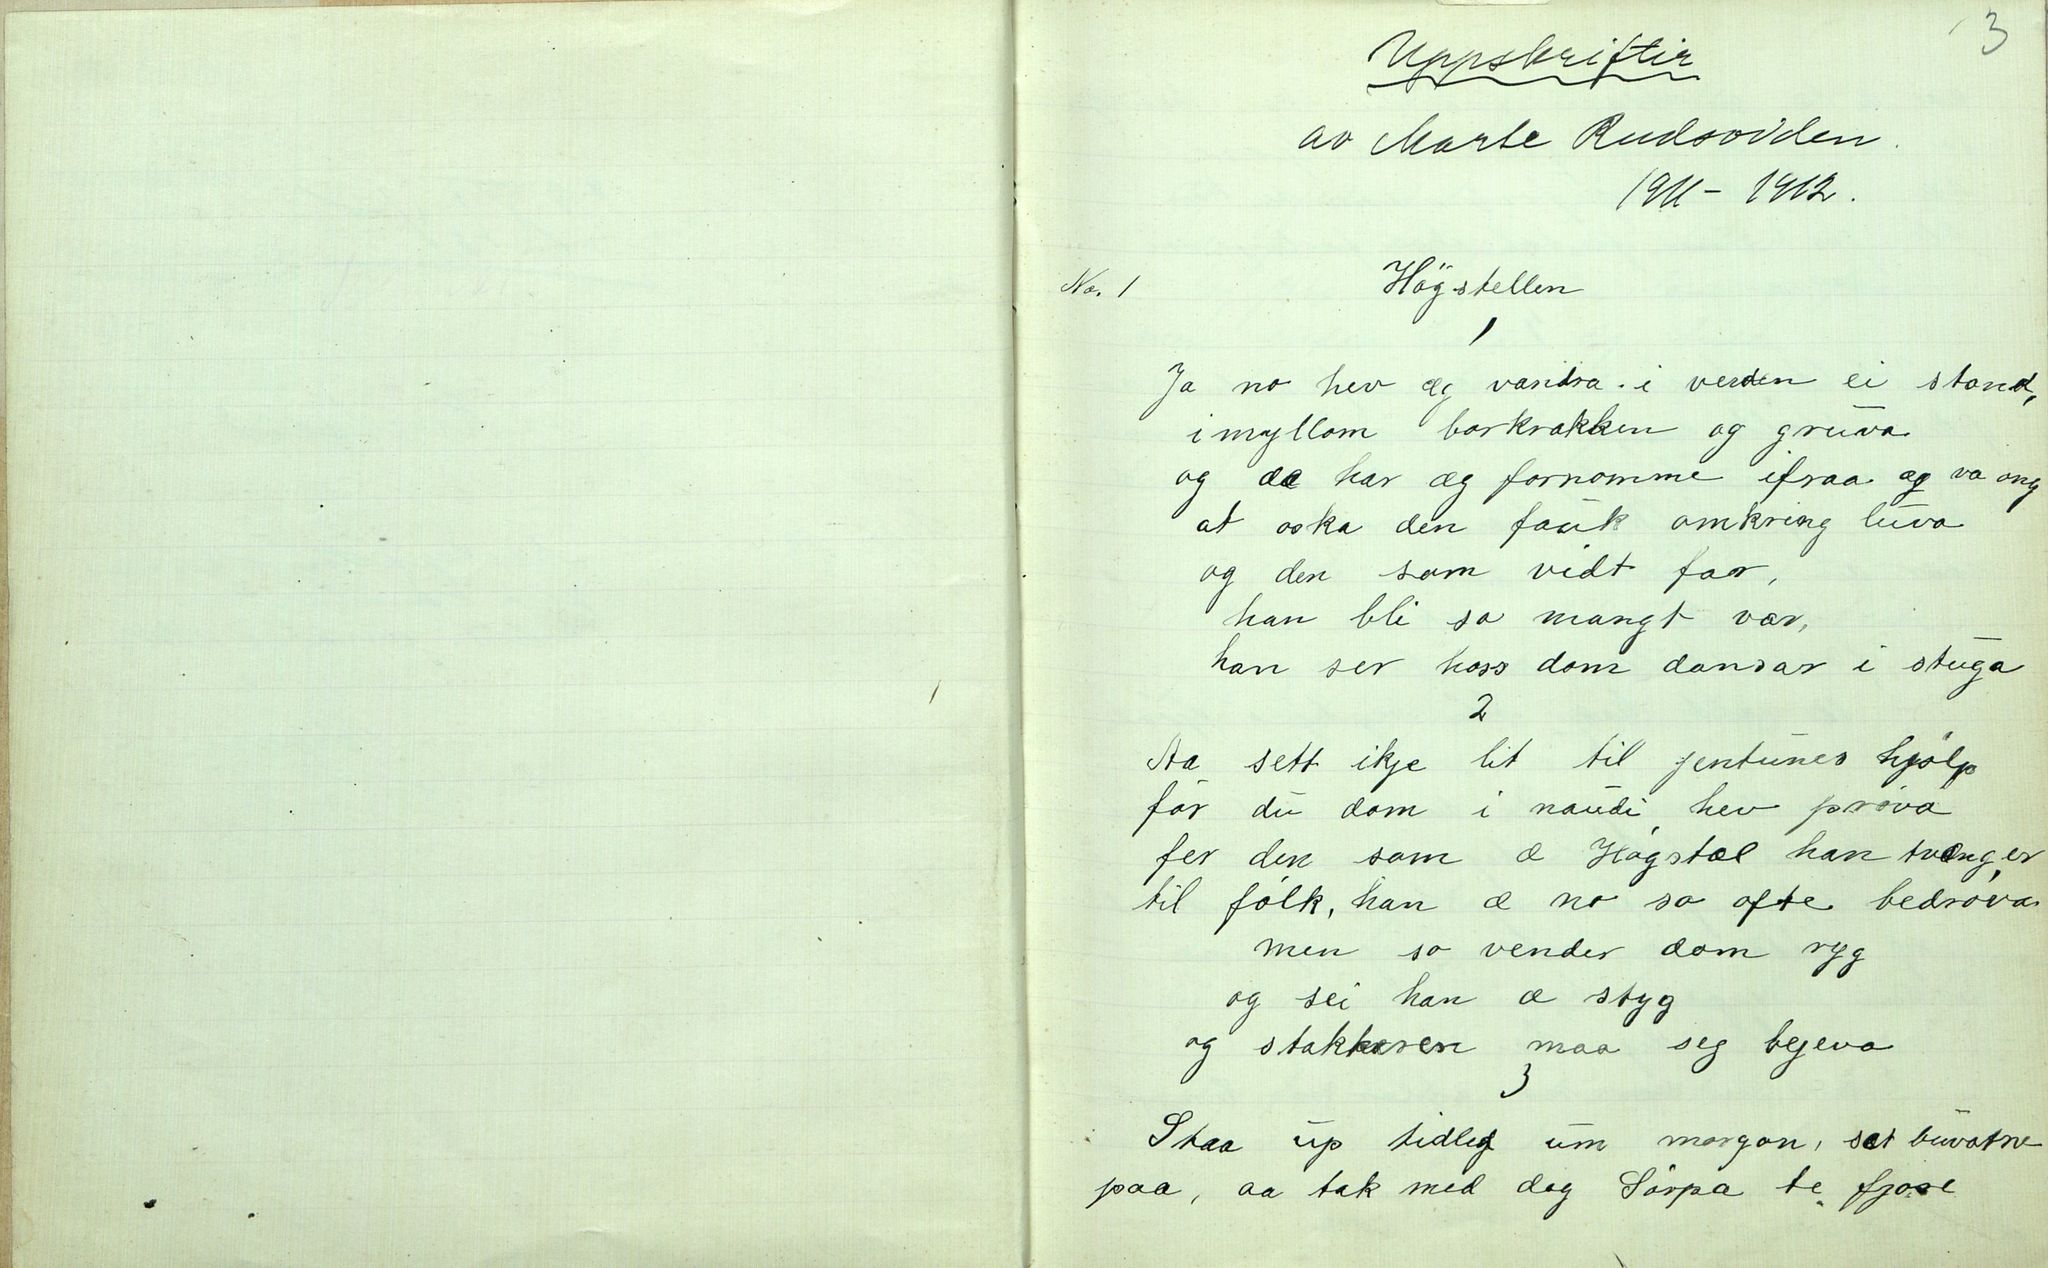 3
Uppskriftir
av Marte Rudsviden.
1911 - 1912.
No. 1 Högstellen
1
Ja no hev æg vandra i verden ei stond,
imyllom borkrakken og grūva
og dæ har æg fornomme ifraa æg va ong
at oska den faūk omkring lūva
og den som vidt far,
han bli so mangt var,
han ser hoss dom dansar i stūga
2
Aa sett ikje lit til jentūnes hjölp
för dū dom i naūdi hev pröva
fer den som æ Högstæl han trænger
til fölk, han æ no so ofte bedröva
men so vender dom ryg
og sei han æ styg
og stakkaren maa seg bejeva
3
Staa ūp tidleg ūm morgon, sæt būvatne
paa, aa tak med deg Sörpa te fjose